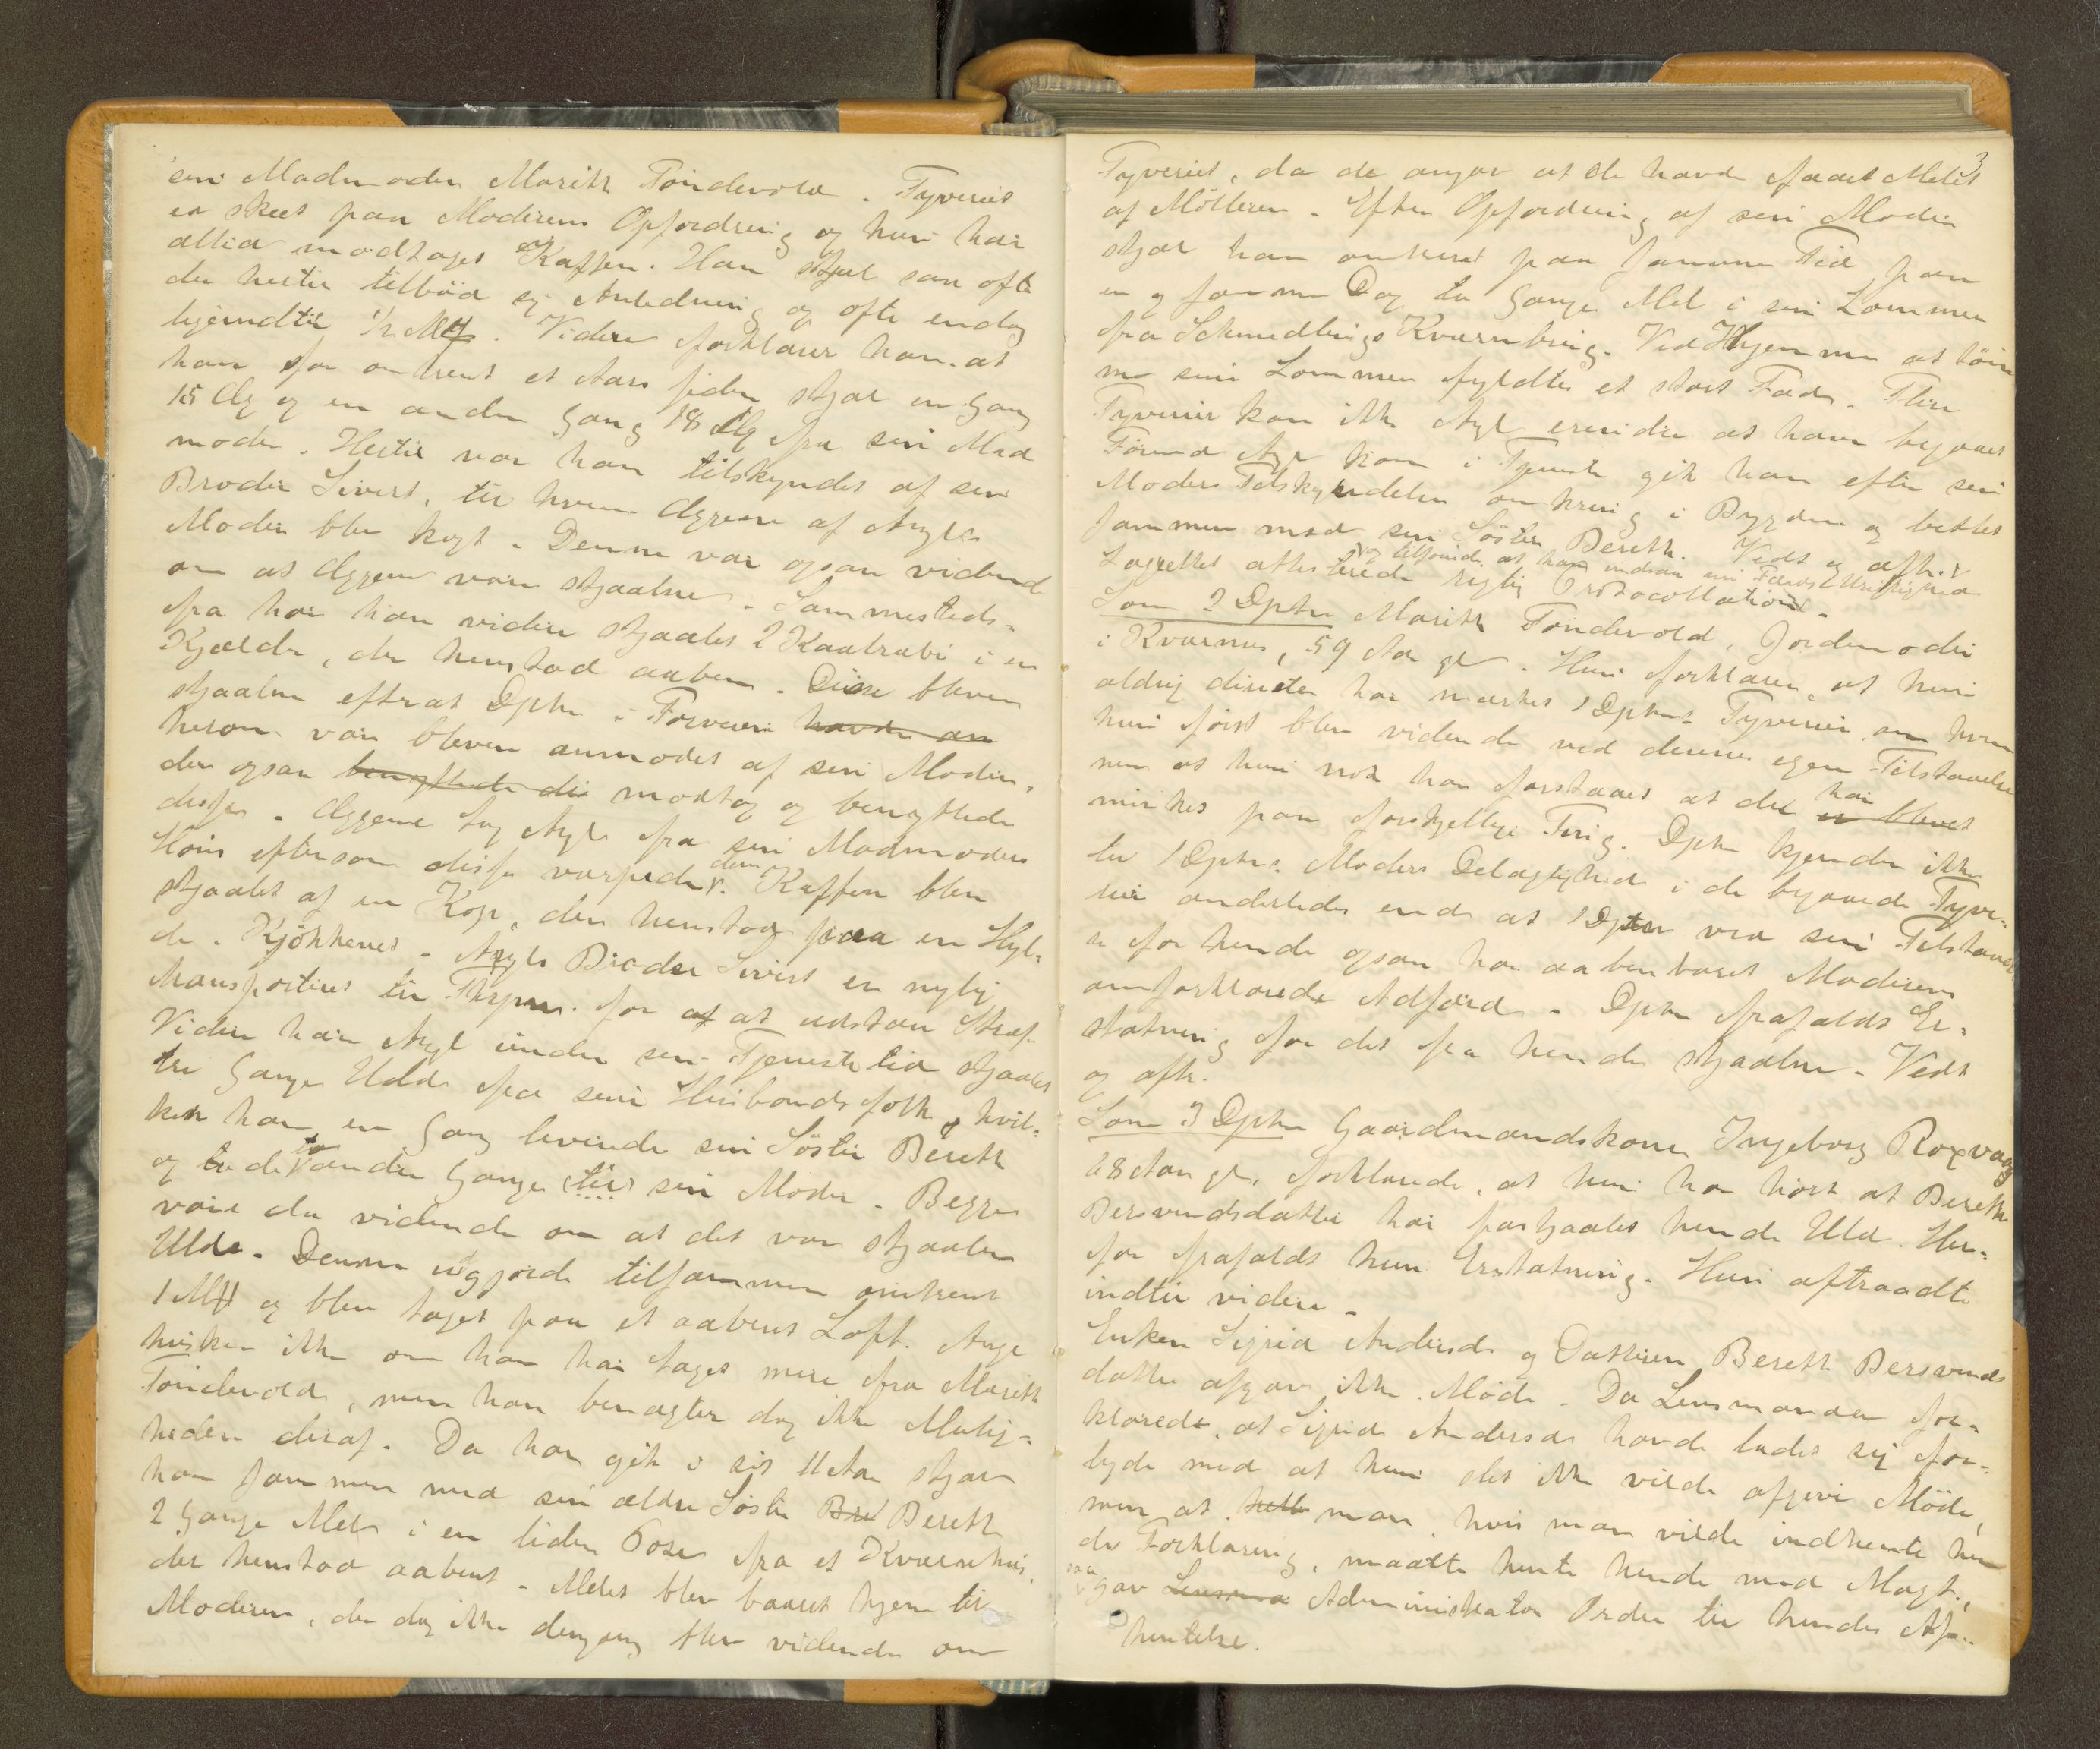 sin Madmoder Marith Tøndevold. Tyveriet
er skeet paa Moderens Opfordring og hun har
altid modtaget Kaffen. Han stjal saa ofte
der hertil tilbød sig Anledning og ofte endog
hjemdtil 1/2 M. Videre forklarer han at
han for omtrent et Aar siden stjal en Gang
15 Æg og en anden Gang 18 Æg fra sin Mad
moder. Hertil var han tilskyndet af sin
Broder Sivert, til hvem Æggene af Angles
Moder blev kogt. Denne var ogsaa vidende
om at Æggene vare stjaalne. Sammesteds-
fra har han videre stjaalet 2 Kaalrabi i en
Kjælder, der henstod aaben. Disse bleve
stjaalne efterat Dptn i Forveien havde an
herom var bleven anmodet af sin Moder,
der ogsaa benyttede de modtog og benyttede
disse. Æggene tog Angle fra sin Madmoders
Høns eftersom disse værpede dem. Kaffen blev
stjaalet af en Kop, der henstod paa en Hyl-
de i Kjøkkenet. Angles Broder Sivert er nylig
transporteret til Thjem for at at udstaa Straf.
Videre har Angel under sin Tjenestetid stjaalet
tre Gange Uld fra sine Husbondsfolk, hvil-
ken han en Gang leverede sin Søster Bereth
og de to andre Gange til sin Moder. Begge
vare da vidende om at det var stjaalen
Uld. Denne udgjorde tilsammen omtrent
1 M og blev taget paa et aabent Loft. Angel
husker ikke om han har taget mere fra Marith
Tøndevold, men han benægter dog ikke Mulig-
heden deraf. Da han gik i sit 11te Aar stjal
han sammen med sin ældre Søster Bre Bereth
2 Gange Mel i en liden Pose fra et Kværnhus,
der henstod aabent. Melet blev baaret hjem til
Moderen, der dog ikke dengang blev vidende om
3
Tyveriet, da de angav at de havde faaet Melet
af Mølleren. Efter Opfordring af sin Moder
stjal han omtrent paa samme Tid paa
en og samme Dag to Gange Mel i sin Lomme
fra Schmedlings Kværnbrug. Ved Hjemme at tøm
me sine Lommer fyldtes et stort Fad. Flere
Tyverier kan ikke Angel erindre at have begaaet
Førend Angel kom i Tjeneste gik han efter sin
Moders Tilskyndelse omkring i Bygden og betlet
sammen med sin Søster Bereth. Vedt og afth.
og tilføiede, at han indsaa sin Færds Uriktighed
Lagrettet attesterede rigtig Protocollation.
Som 2 Dptn Marith Tøndevold, Jordemoder
i Kværnes, 59 Aar gl. Hun forklarer, at hun
aldrig directe har mærket 1 Dptns Tyverier, om hvem
hun først blev vidende ved dennes egen Tilstaaelse
men at hun nok har forstaaet at der har er blevet
mistet paa forskjellige Ting. Dptn kjender ikke
til 1 Dptns Moders Delagtighed i de begaaede Tyve-
rier anderledes end at 1 Dptn ved sin Tilstaael
se for hende ogsaa har aabenbaret Moderens
omforklarede Adfærd. Dptn frafaldt Er-
statning for det fra hende stjaalne. Vedt
og afth.
Som 3 Dptn Gaardmandskone Ingeborg Roxvaag
28 Aar gl., forklarede, at hun har hørt at Bereth
Bersvendsdatter har fastjaalet hende Uld. Her-
for frafaldt hun Erstatning. Hun aftraadte
indtil videre.
Enken Sigrid Andersd. og Datteren Bereth Bersvends
datter afgav ikke Møde. Da Lensmanden for-
klarede, at Sigrid Andersd. havde ladet sig for-
lyde med at hun slet ikke vilde afgive Møde,
men at hell man, hvis man vilde indhente hen
des Forklaring, maatte hente hende med Magt,
saa gav Lensma Administrator Ordre til hendes Af-
hentelse.